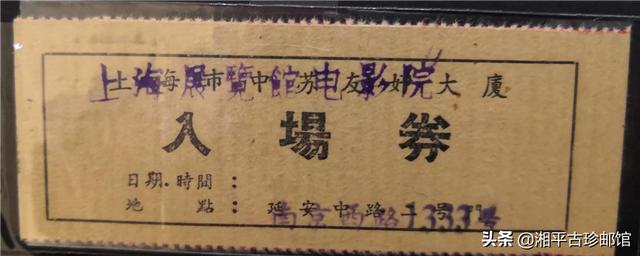 上海市中苏友好大廈
上海展覽館电影院
入場券
日期.時間：
地點：延安中路二号
南京西路1333号
头条 @湘平古珍邮馆